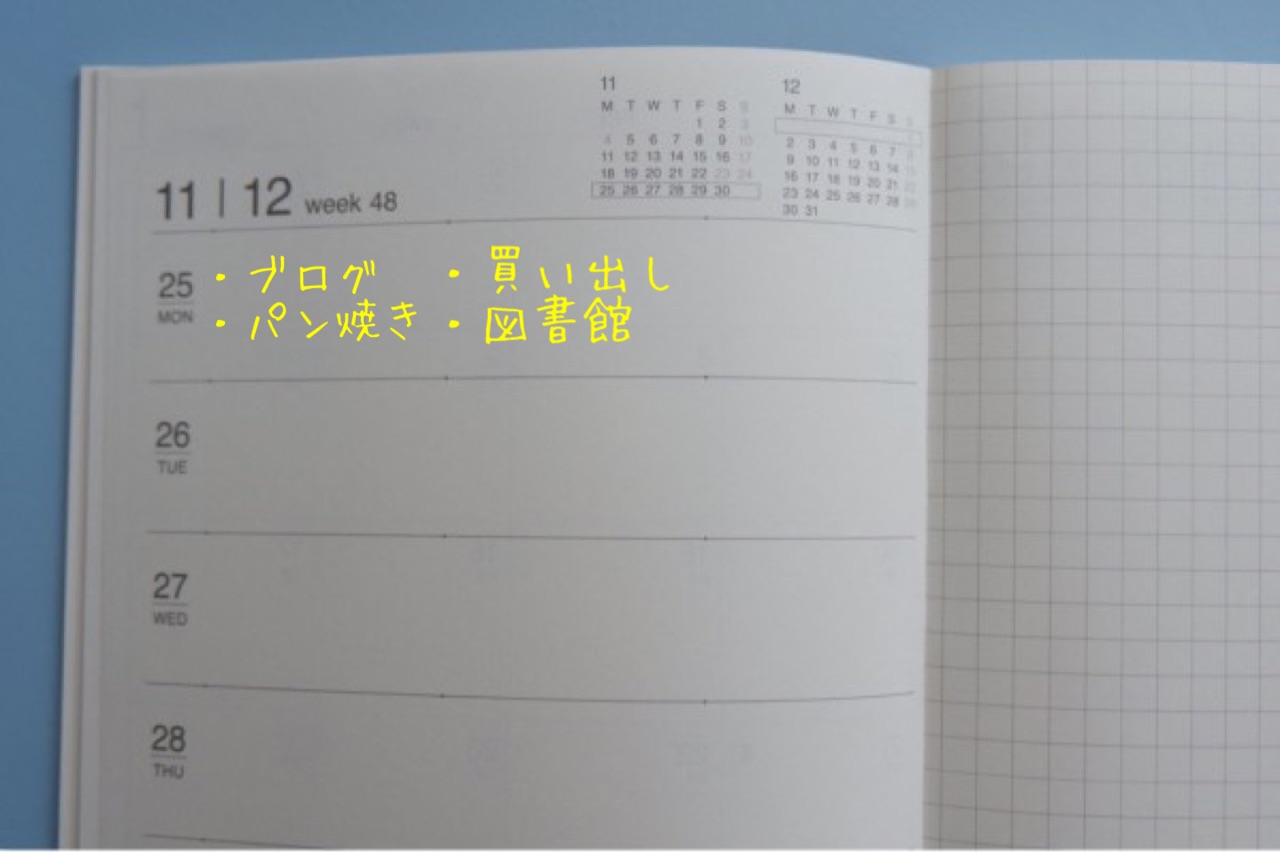 11
M T W T F S S
1 2 3
4 5 6 7 8 9 10
11 12 13 14 15 16 17
18 19 20 21 22 23 24
25 26 27 28 29 30
12
M T W T F S S
2 3 4 5 6 7 8
9 10 11 12 13 14 15
16 17 18 19 20 21 22
23 24 25 26 27 28 29
30 31
11 | 12 week 48
25
MON
・ブログ ・買い出し
・パン焼き ・図書館
26
TUE
27
WED
28
THU